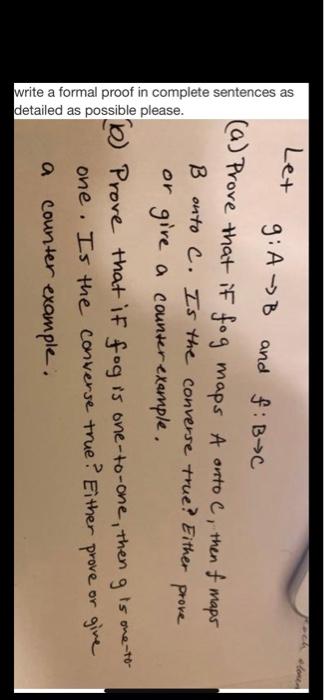 write a formal proof in complete sentences as
detailed as possible please.
each elemen
Let g: A→B and f: B→C
(a) Prove that if fog maps A onto C, then f maps
B onto C. Is the converse true? Either prove
or give a counterexample.
(b) Prove that if fog is one-to-one, then g is one-to-
one. Is the converse true? Either prove or give
a counter example.